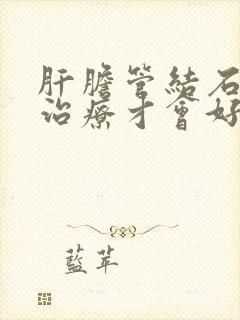 肝膽管結石
治療才會好
藍苹